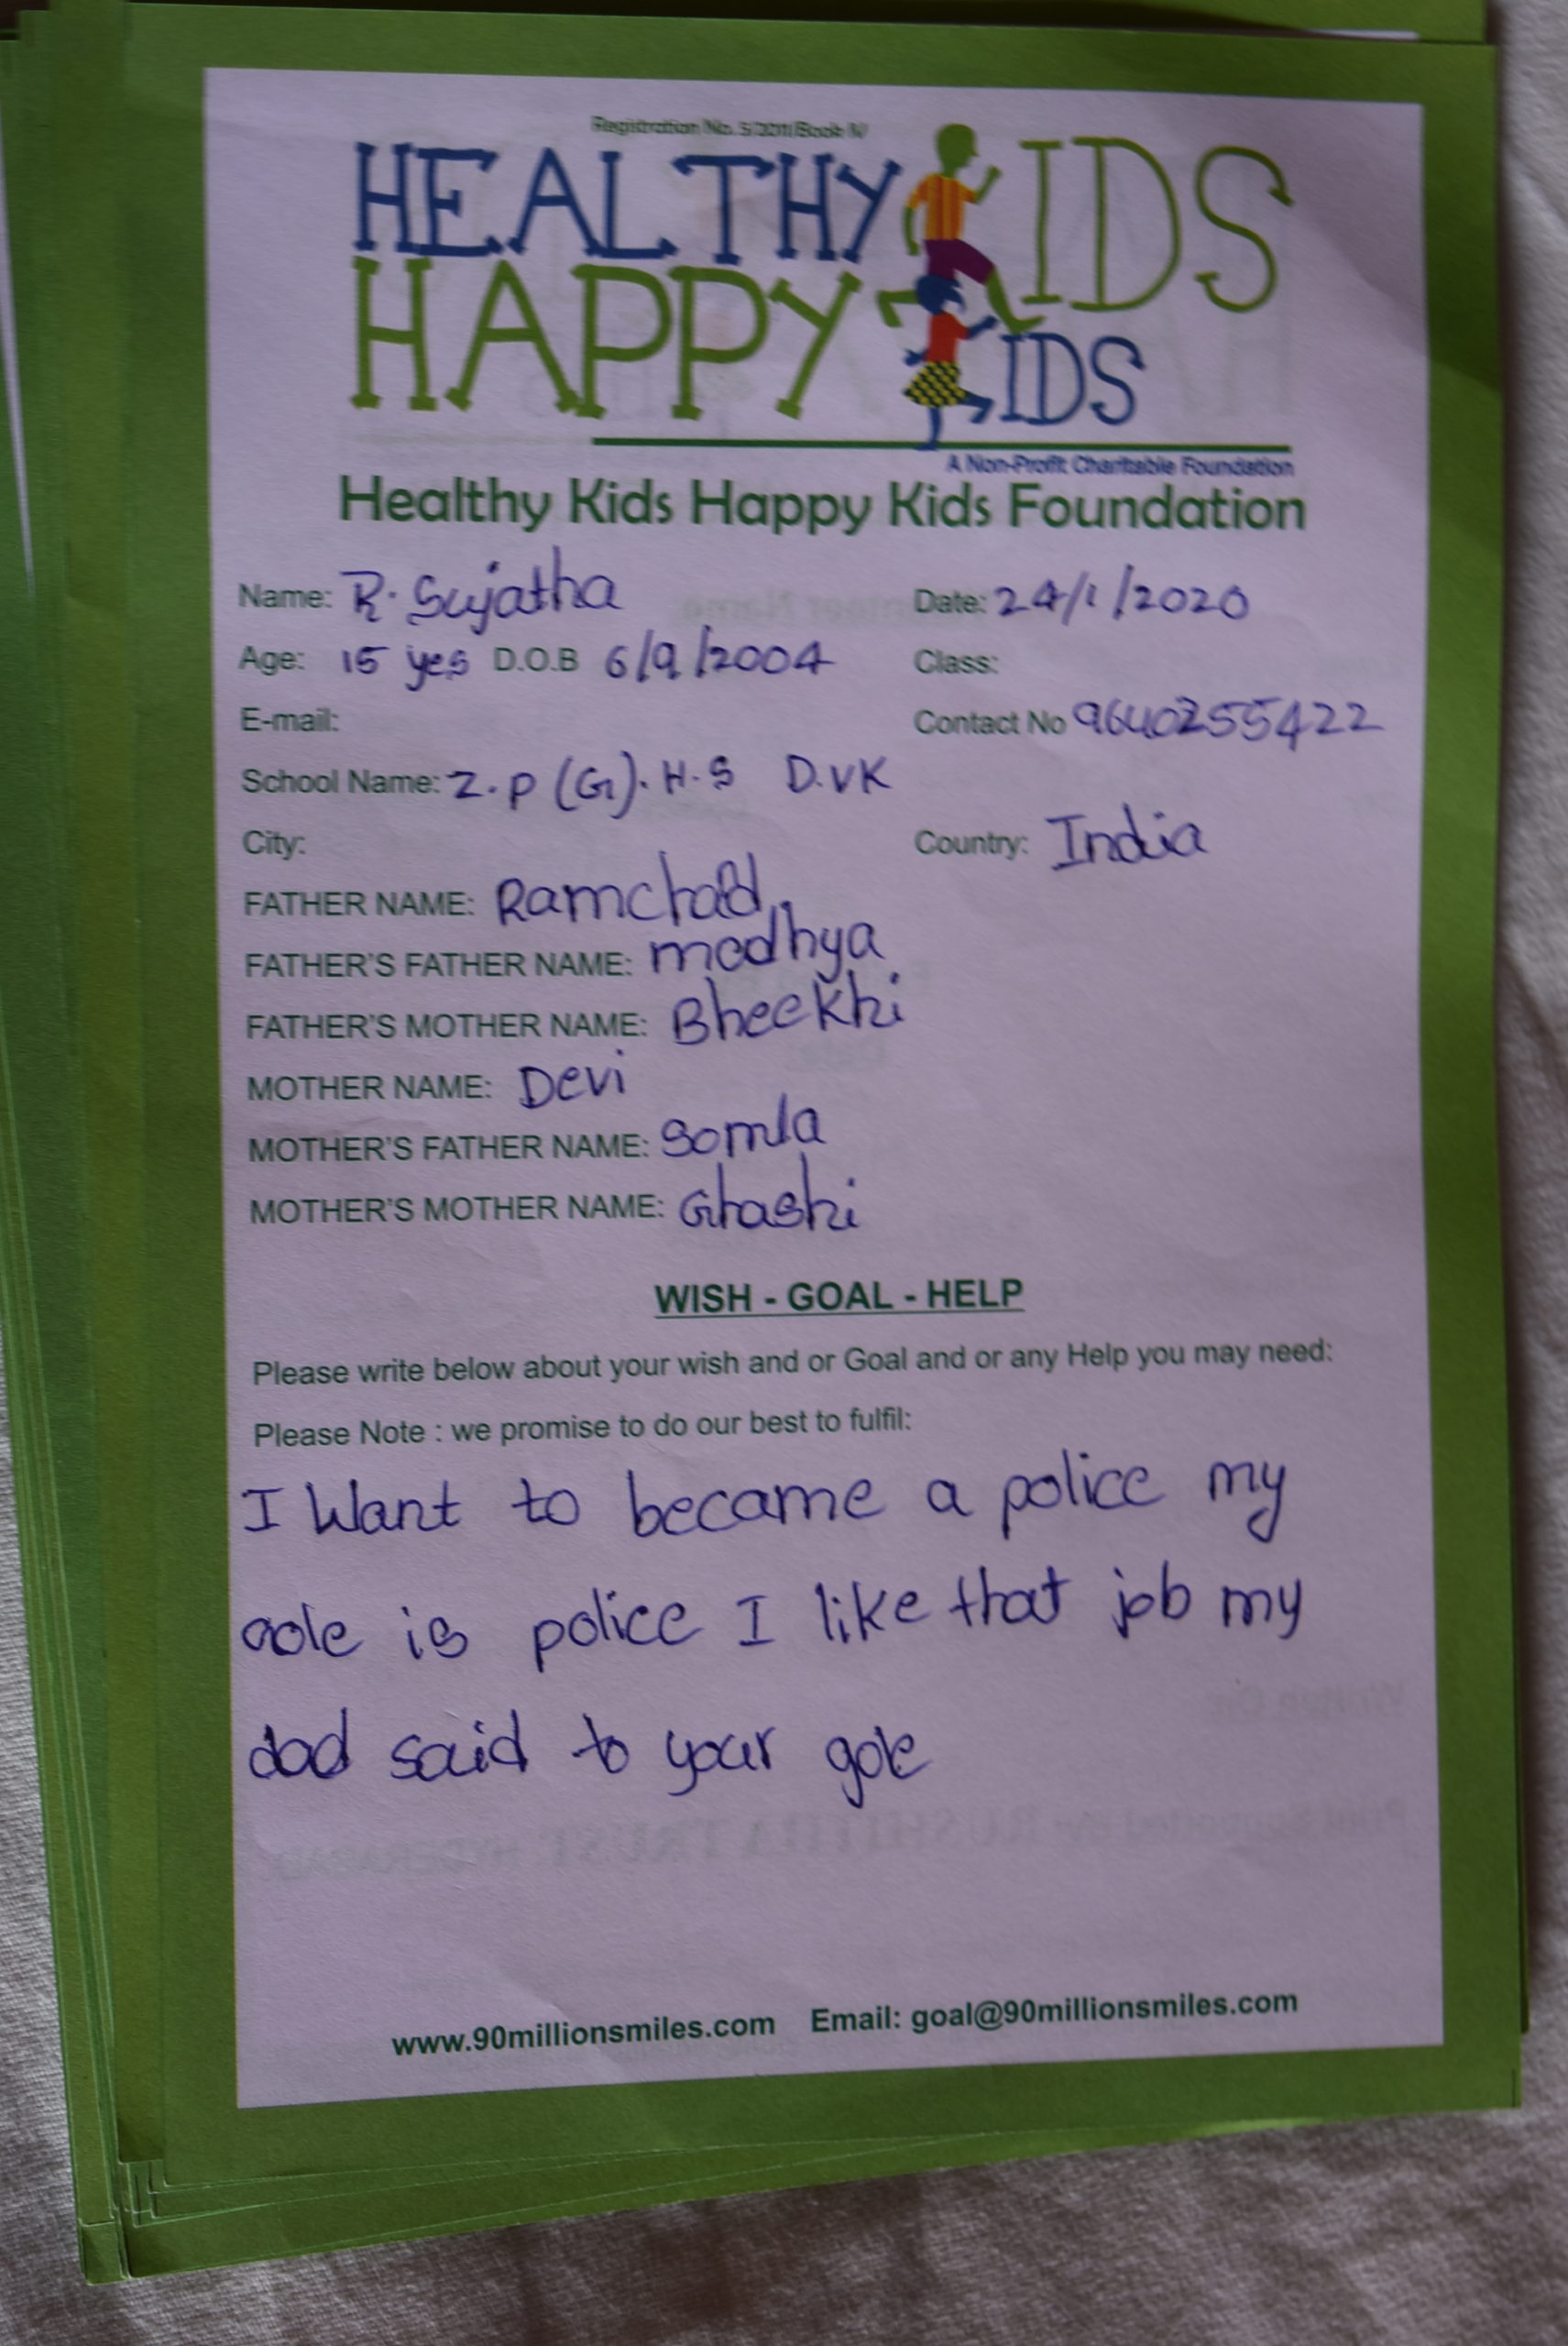 Registration No. 5/2011/Book IV
HEALTHY KIDS
HAPPY KIDS
A Non-Profit Charitable Foundation
Healthy Kids Happy Kids Foundation
Name: R. Sujatha Date: 24/1/2020
Age: 15 yes D.O.B 6/9/2004 Class:
E-mail: Contact No 9640255422
School Name: Z.P (G). H.S D.VK
City: Country: India
FATHER NAME:
FATHER'S FATHER NAME: modhya
FATHER'S MOTHER NAME: Bheekhi
MOTHER NAME: Devi
MOTHER'S FATHER NAME: Somla
MOTHER'S MOTHER NAME: Ghashi
WISH - GOAL - HELP
Please write below about your wish and or Goal and or any Help you may need:
Please Note : we promise to do our best to fulfil:
I Want to became a police my
gole is police I like that job my
dad said to your gole
www.90millionsmiles.com Email: goal@90millionsmiles.com